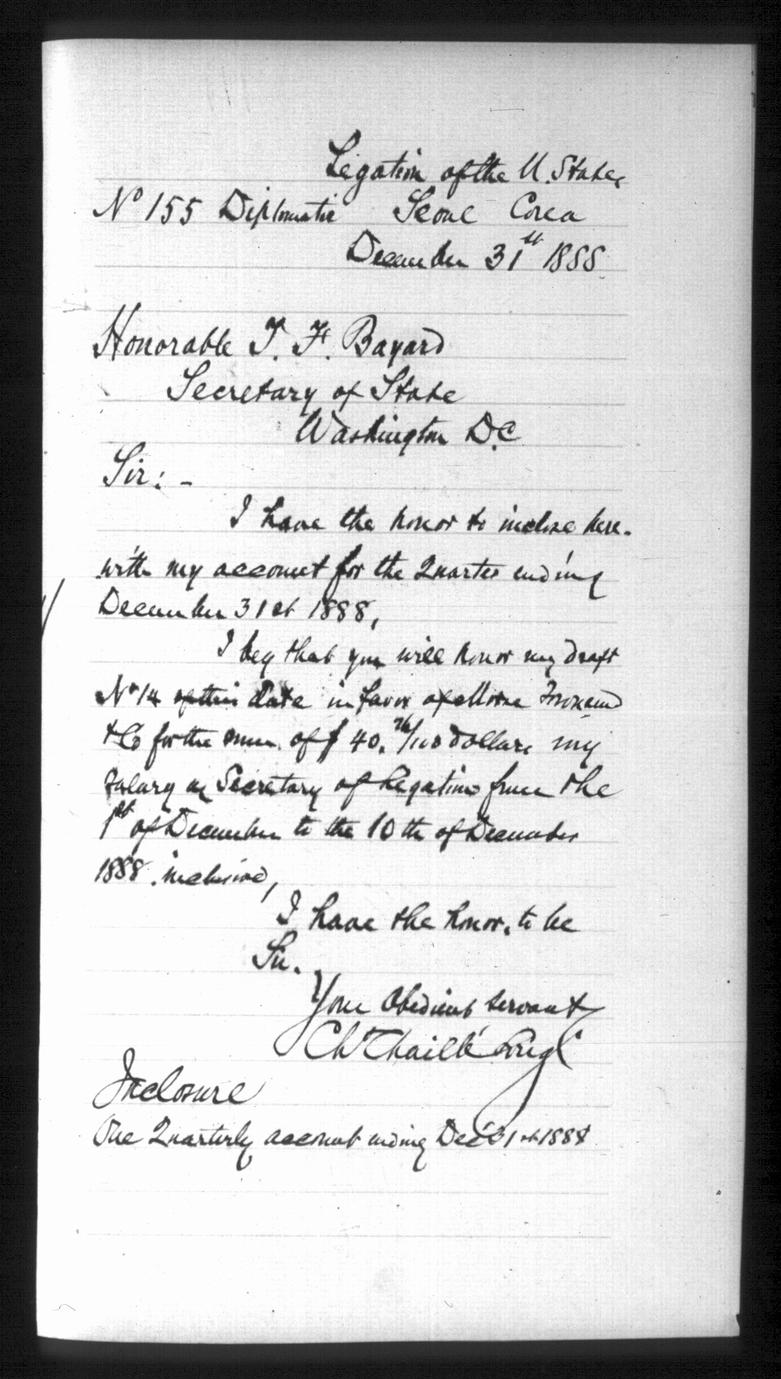 Legation of the U. States
No 155 Diplomatic Seoul Corea
December 31st 1888
Honorable T. F. Bayard
Secretary of State
Washington D.C
Sir: -
I have the honor to inclose here-
with my account for the Quarter ending
December 31st 1888,
I beg that you will honor my draft
No 14 of this date in favor of Morse Townsend
& Co for the sum of $ 40. 76/100 dollars my
Salary as Secretary of Legation from the
1st of December to the 10th of December
1888 inclusive,
I have the honor, to be
Sir.
Your Obedient Servant
Ch Chaillé Long
Inclosure
One Quarterly account ending Dec 31st 1888